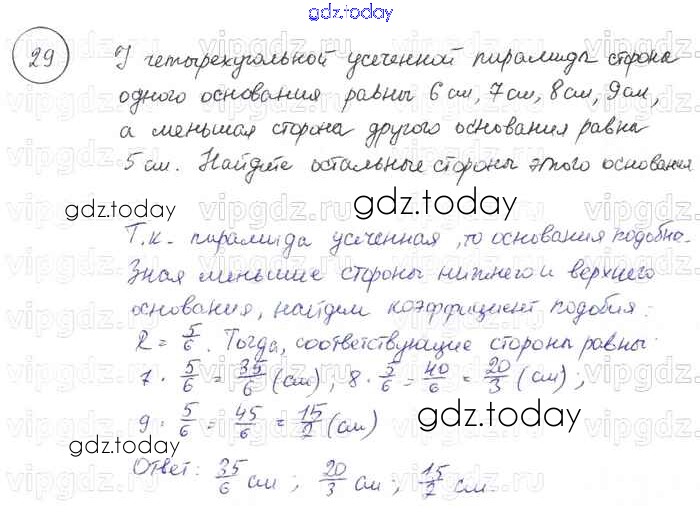 gdz.today
29 У четырехугольной усеченной пирамиды сторона
одного основания равны 6 см, 7 см, 8 см, 9 см,
а меньшая сторона другого основания равна
5 см. Найдите остальные стороны этого основания
gdz.today
gdz.today
Т.к. пирамида усеченная, то основания подобны.
Зная меньшие стороны нижнего и верхнего
основания, найдем коэффициент подобия:
k = 5/6. Тогда, соответствующие стороны равны:
7 · 5/6 = 35/6 (см); 8 · 5/6 = 40/6 = 20/3 (см);
9 · 5/6 = 45/6 = 15/2 (см)
gdz.today
gdz.today
Ответ: 35/6 см; 20/3 см; 15/2 см.